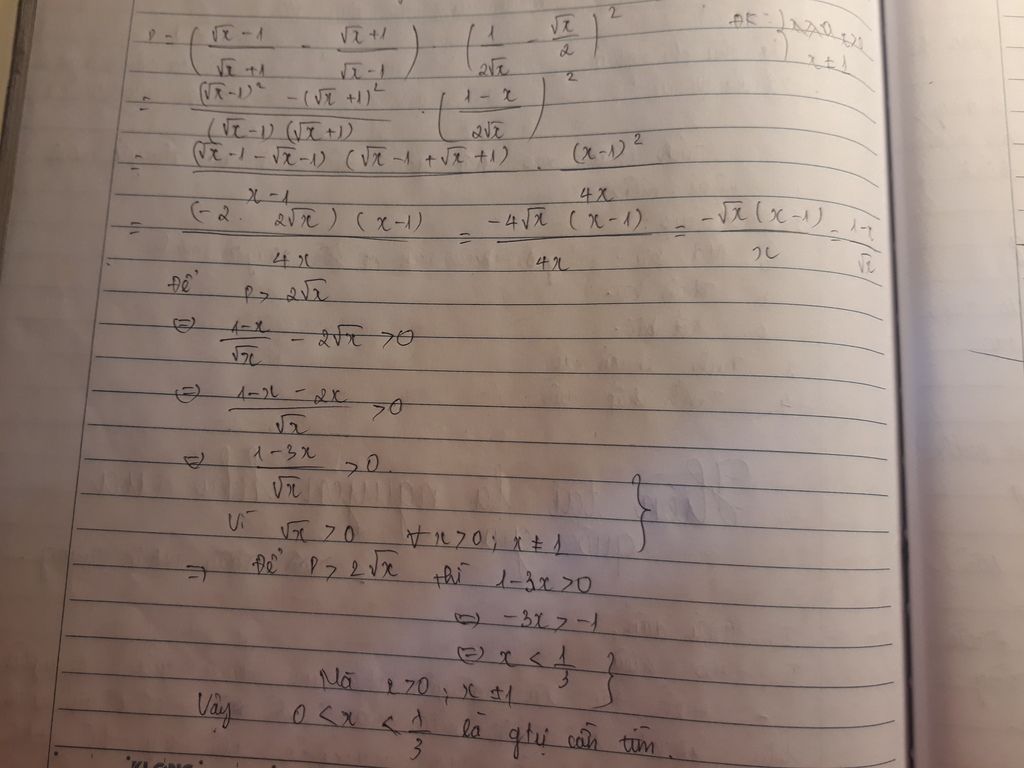 P = ( (√x - 1)/(√x + 1) - (√x + 1)/(√x - 1) ) · ( 1/(2√x) - √x/2 )² ĐK: } x > 0 x ≠ 1
= ((√x-1)² - (√x+1)²)/((√x-1)(√x+1)) · ( (1 - x)/(2√x) )²
= ((√x - 1 - √x - 1)(√x - 1 + √x + 1))/(x - 1) · (x-1)²/(4x)
= ((-2 · 2√x)(x-1))/(4x) = (-4√x (x-1))/(4x) = (-√x (x-1))/x = (1-x)/√x
Để P > 2√x
⇔ (1-x)/√x - 2√x > 0
⇔ (1-x - 2x)/√x > 0
⇔ (1-3x)/√x > 0
Vì √x > 0 ∀ x > 0 ; x ≠ 1 }
⇒ Để P > 2√x thì 1-3x > 0
⇔ -3x > -1
⇔ x < 1/3
Mà x > 0 ; x ≠ 1 }
Vậy 0 < x < 1/3 là gtrị cần tìm.